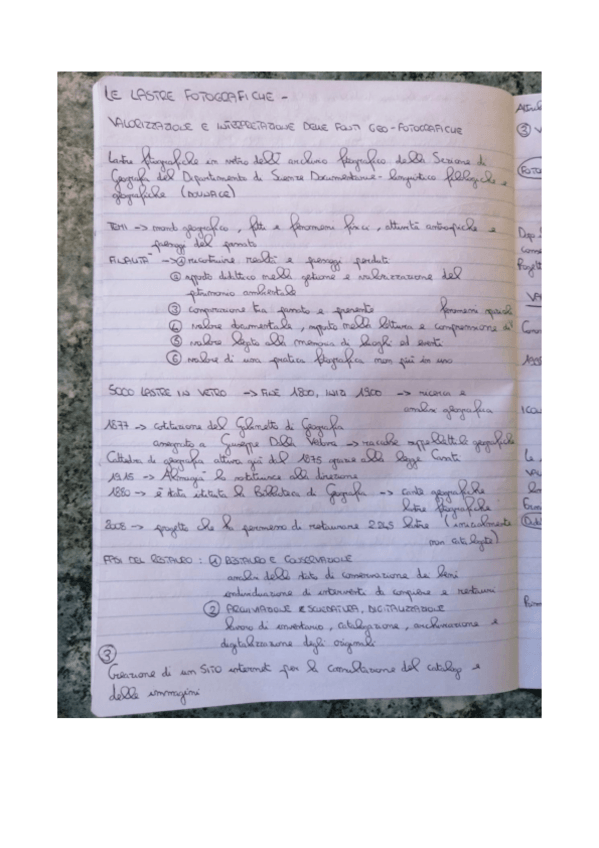 LE LASTRE FOTOGRAFICHE -
VALORIZZAZIONE E INTERPRETAZIONE DELLE FONTI GEO-FOTOGRAFICHE
Lastre fotografiche in vetro dell'archivio fotografico della Sezione di
Geografia del Dipartimento di Scienze Documentarie - linguistico filologiche e
geografiche
TEMI → mondo geografico, fatti e fenomeni fisici, attività antropiche e
paesaggi del passato
FINALITÀ → ① ricostruire realtà e paesaggi perduti
② apporto didattico nella gestione e valorizzazione del
patrimonio ambientale
③ comparazione tra passato e presente fenomeni spaziali
④ valore documentale, apporto nella lettura e comprensione di
⑤ valore legato alla memoria di luoghi ed eventi
⑥ valore di una pratica fotografica non più in uso
LASTRE IN VETRO → FINE 1800, INIZI 1900 → ricerca e
analisi geografica
1877 → costituzione del Gabinetto di Geografia
assegnato a Giuseppe Dalla Vedova → raccolse suppellettile geografiche
Cattedra di geografia attiva già dal 1875 grazie alla legge Casati
1915 → Almagià lo sostituisce alla direzione
è stata istituita la Biblioteca di Geografia → carte geografiche
lastre fotografiche
2008 → progetto che ha permesso di restaurare 2245 lastre (inizialmente
non catalogate)
FASI DEL RESTAURO: ① RESTAURO E CONSERVAZIONE
analisi dello stato di conservazione dei beni
individuazione di interventi da compiere e restauri
② ARCHIVIAZIONE E SCHEDATURA, DIGITALIZZAZIONE
lavoro di inventario, catalogazione, archiviazione e
digitalizzazione degli originali
③
Creazione di un sito internet per la consultazione del catalogo e
delle immagini